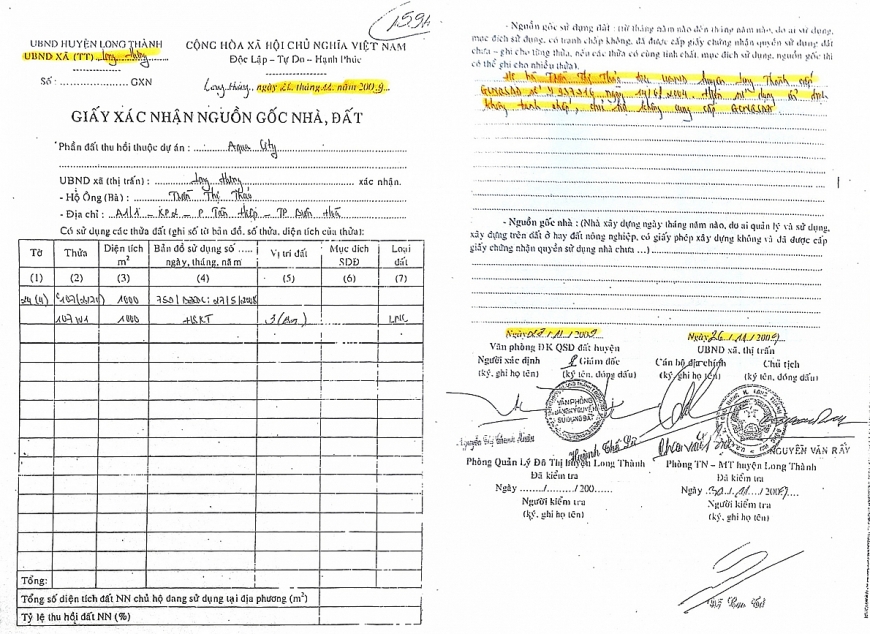 159A
UBND HUYỆN LONG THÀNH
UBND XÃ (TT) Long Hưng
Số : .................... GXN
CỘNG HÒA XÃ HỘI CHỦ NGHĨA VIỆT NAM
Độc Lập – Tự Do – Hạnh Phúc
Long Hưng, ngày 26 tháng 11 năm 2009
GIẤY XÁC NHẬN NGUỒN GỐC NHÀ, ĐẤT
Phần đất thu hồi thuộc dự án : Aqua City
UBND xã (thị trấn) : Long Hưng xác nhận.
- Hộ Ông (Bà) : Trần Thị
- Địa chỉ : A1/1 – – P Tân Hiệp – TP Biên Hòa
Có sử dụng các thửa đất (ghi số tờ bản đồ, số thửa, diện tích của thửa):
Tờ Thửa Diện tích m² Bản đồ sử dụng số ..... ngày, tháng, năm Vị trí đất Mục đích SDĐ Loại đất
(1) (2) (3) (4) (5) (6) (7)
1000
107 1000 HSKT 3 LNC
Tổng:
Tổng số diện tích đất NN chủ hộ đang sử dụng tại địa phương (m²)
Tỷ lệ thu hồi đất NN (%)
- Nguồn gốc sử dụng đất : (từ tháng năm nào đến tháng năm nào, do ai sử dụng,
mục đích sử dụng, có tranh chấp không, đã được cấp giấy chứng nhận quyền sử dụng đất
chưa – ghi cho từng thửa, nếu các thửa có cùng tính chất, mục đích sử dụng, nguồn gốc thì
có thể ghi cho nhiều thửa).
Hộ bà Trần Thị được UBND huyện Long Thành cấp
GCNQSDĐ số ngày 14/6/2004. Hiện sử dụng ổn định
không tranh chấp, chủ hộ không cung cấp GCNQSDĐ
- Nguồn gốc nhà : (Nhà xây dựng ngày tháng năm nào, do ai quản lý và sử dụng,
xây dựng trên đất ở hay đất nông nghiệp, có giấy phép xây dựng không và đã được cấp
giấy chứng nhận quyền sử dụng nhà chưa ...)
Ngày 27/11/2009
Văn phòng ĐK QSD đất huyện
Người xác định Giám đốc
(ký, ghi họ tên) (ký tên, đóng dấu)
Ngày 26/11/2009
UBND xã, thị trấn
Cán bộ địa chính Chủ tịch
(ký, ghi họ tên) (ký tên, đóng dấu)
VĂN PHÒNG
ĐĂNG KÝ QUYỀN
SỬ DỤNG ĐẤT
NGUYỄN VĂN RẤY
Phòng Quản Lý Đô Thị huyện Long Thành
Đã kiểm tra
Ngày ......../........./ 200......
Người kiểm tra
(ký, ghi họ tên)
Phòng TN – MT huyện Long Thành
Đã kiểm tra
Ngày 30/11/2009
Người kiểm tra
(ký, ghi họ tên)